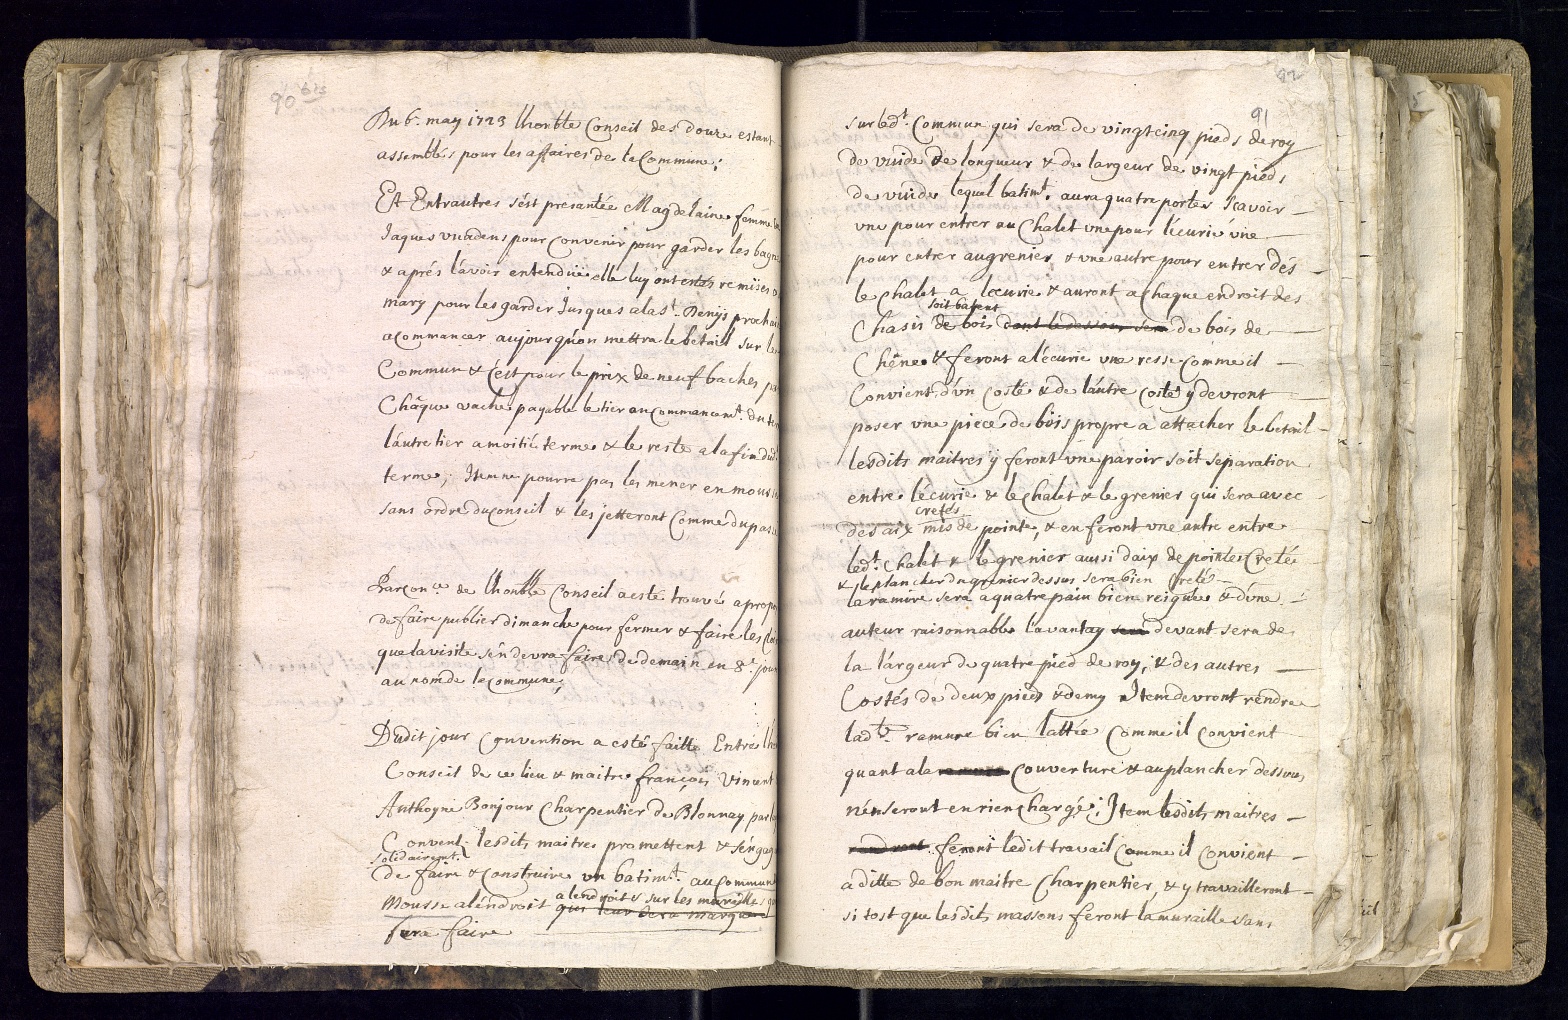 90 bis
Du 6e. may 1723 lhorble Conseil des douze estant
assemblés pour les affaires de la Commune;
Et Entrautres s'est presantée Magdelaine femme
Jaques pour convenir pour garder les
& aprés lavoir entenduë elle luy ont estés remises
mary pour les garder Jusques a la St. Denys prochai
a Commancer aujour qu'on mettra le betail sur le
Commun & C'est pour le prix de neuf baches p
Châque vache payable le tier au Commancemt. du ter
láutre tier a moitié terme & le reste a la fin dud
terme; Item ne pourra pas les mener en mousse
sans ordre du Conseil & les jetteront Comme du passé
Par de lhonble Conseil a esté trouvé a propo
de faire publier dimanche pour fermer & faire les
que la visite s'en devra faire de demain en 8t. jour
au nom de le Commune;
Dudit jour Convention a esté faitte Entre lho
Conseil de ce lieu & maitre françois Vincent
Anthoyne Bonjour Charpentier de Blonnay par la
Convent. lesdits maitres promettent & s'engag
solidairemt.
De faire & Construire un batimt. au Commun
alendroits sur les murailles q
Mousse a léndroit qui leur sera marqué
fera faire
92
91
sur ledt. Commun qui sera de vingt cinq pieds de roy
de vuide de longueur & de largeur de vingt pieds
de vuide lequel batimt. aura quatre portes scavoir
une pour entrer au Chalet une pour lécurie une
pour entrer au grenier & une autre pour entrer dés
le Chalet a lecurie & auront a Chaque endroit des
soit batent
Chasis de bois dont le dessous sera de bois de
Chêne & feront a lécurie une resse Comme il
Convient, d'un Costé & de láutre Costé y devront
poser une piece de bois propre a attacher le betail
lesdits maitres y feront une paroir soit separation
entre lécurie & le Chalet & le grenier qui sera avec
cretés
des aix mis de pointe, & en feront une antre entre
ledt. Chalet & le grenier aussi daix de pointes Cretés
& le plancher du grenier dessus sera bien Creté
la ramire sera a quatre pain bien & d'une
auteur raisonnable lavantay sera devant sera de
la largeur de quatre pied de roy, & des autres
Costés de deux pieds & demy Item devront rendre
ladte. ramure bien lattée Comme il Convient
quant a la Couverture & au plancher dessous
nén seront en rien Chargé; Item lesdits maitres
feront ledit travail Comme il Convient
a ditte de bon maitre Charpentier, & y travailleront
si tost que lesdits massons feront la muraille sans